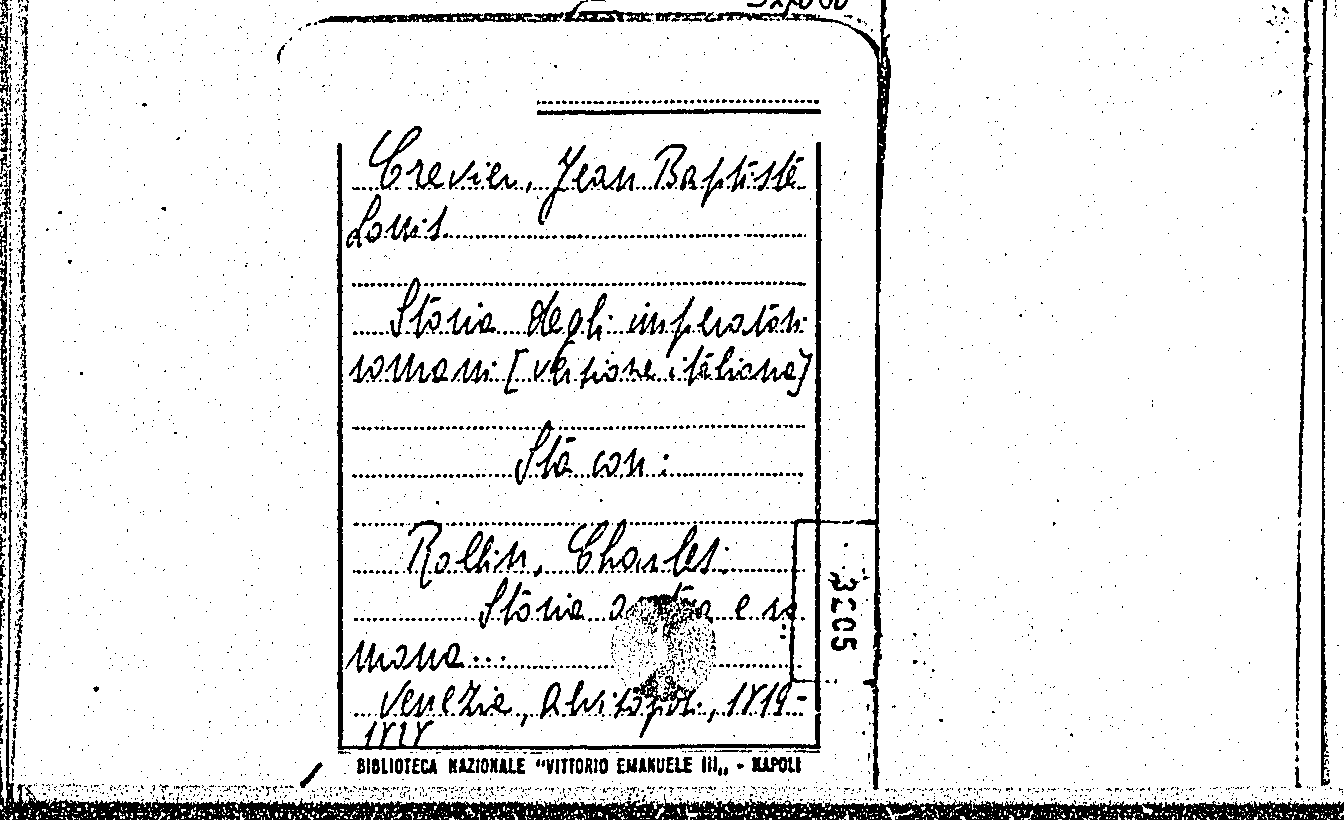 Crevier, Jean Baptiste
Louis
Storia degli imperatori
romani [versione italiana]
Sta con:
Rollin, Charles.
Storia antica e ro
mana...
Venezia, Alvisopoli, 1819-
1828
BIBLIOTECA NAZIONALE "VITTORIO EMANUELE III„ - NAPOLI
3205